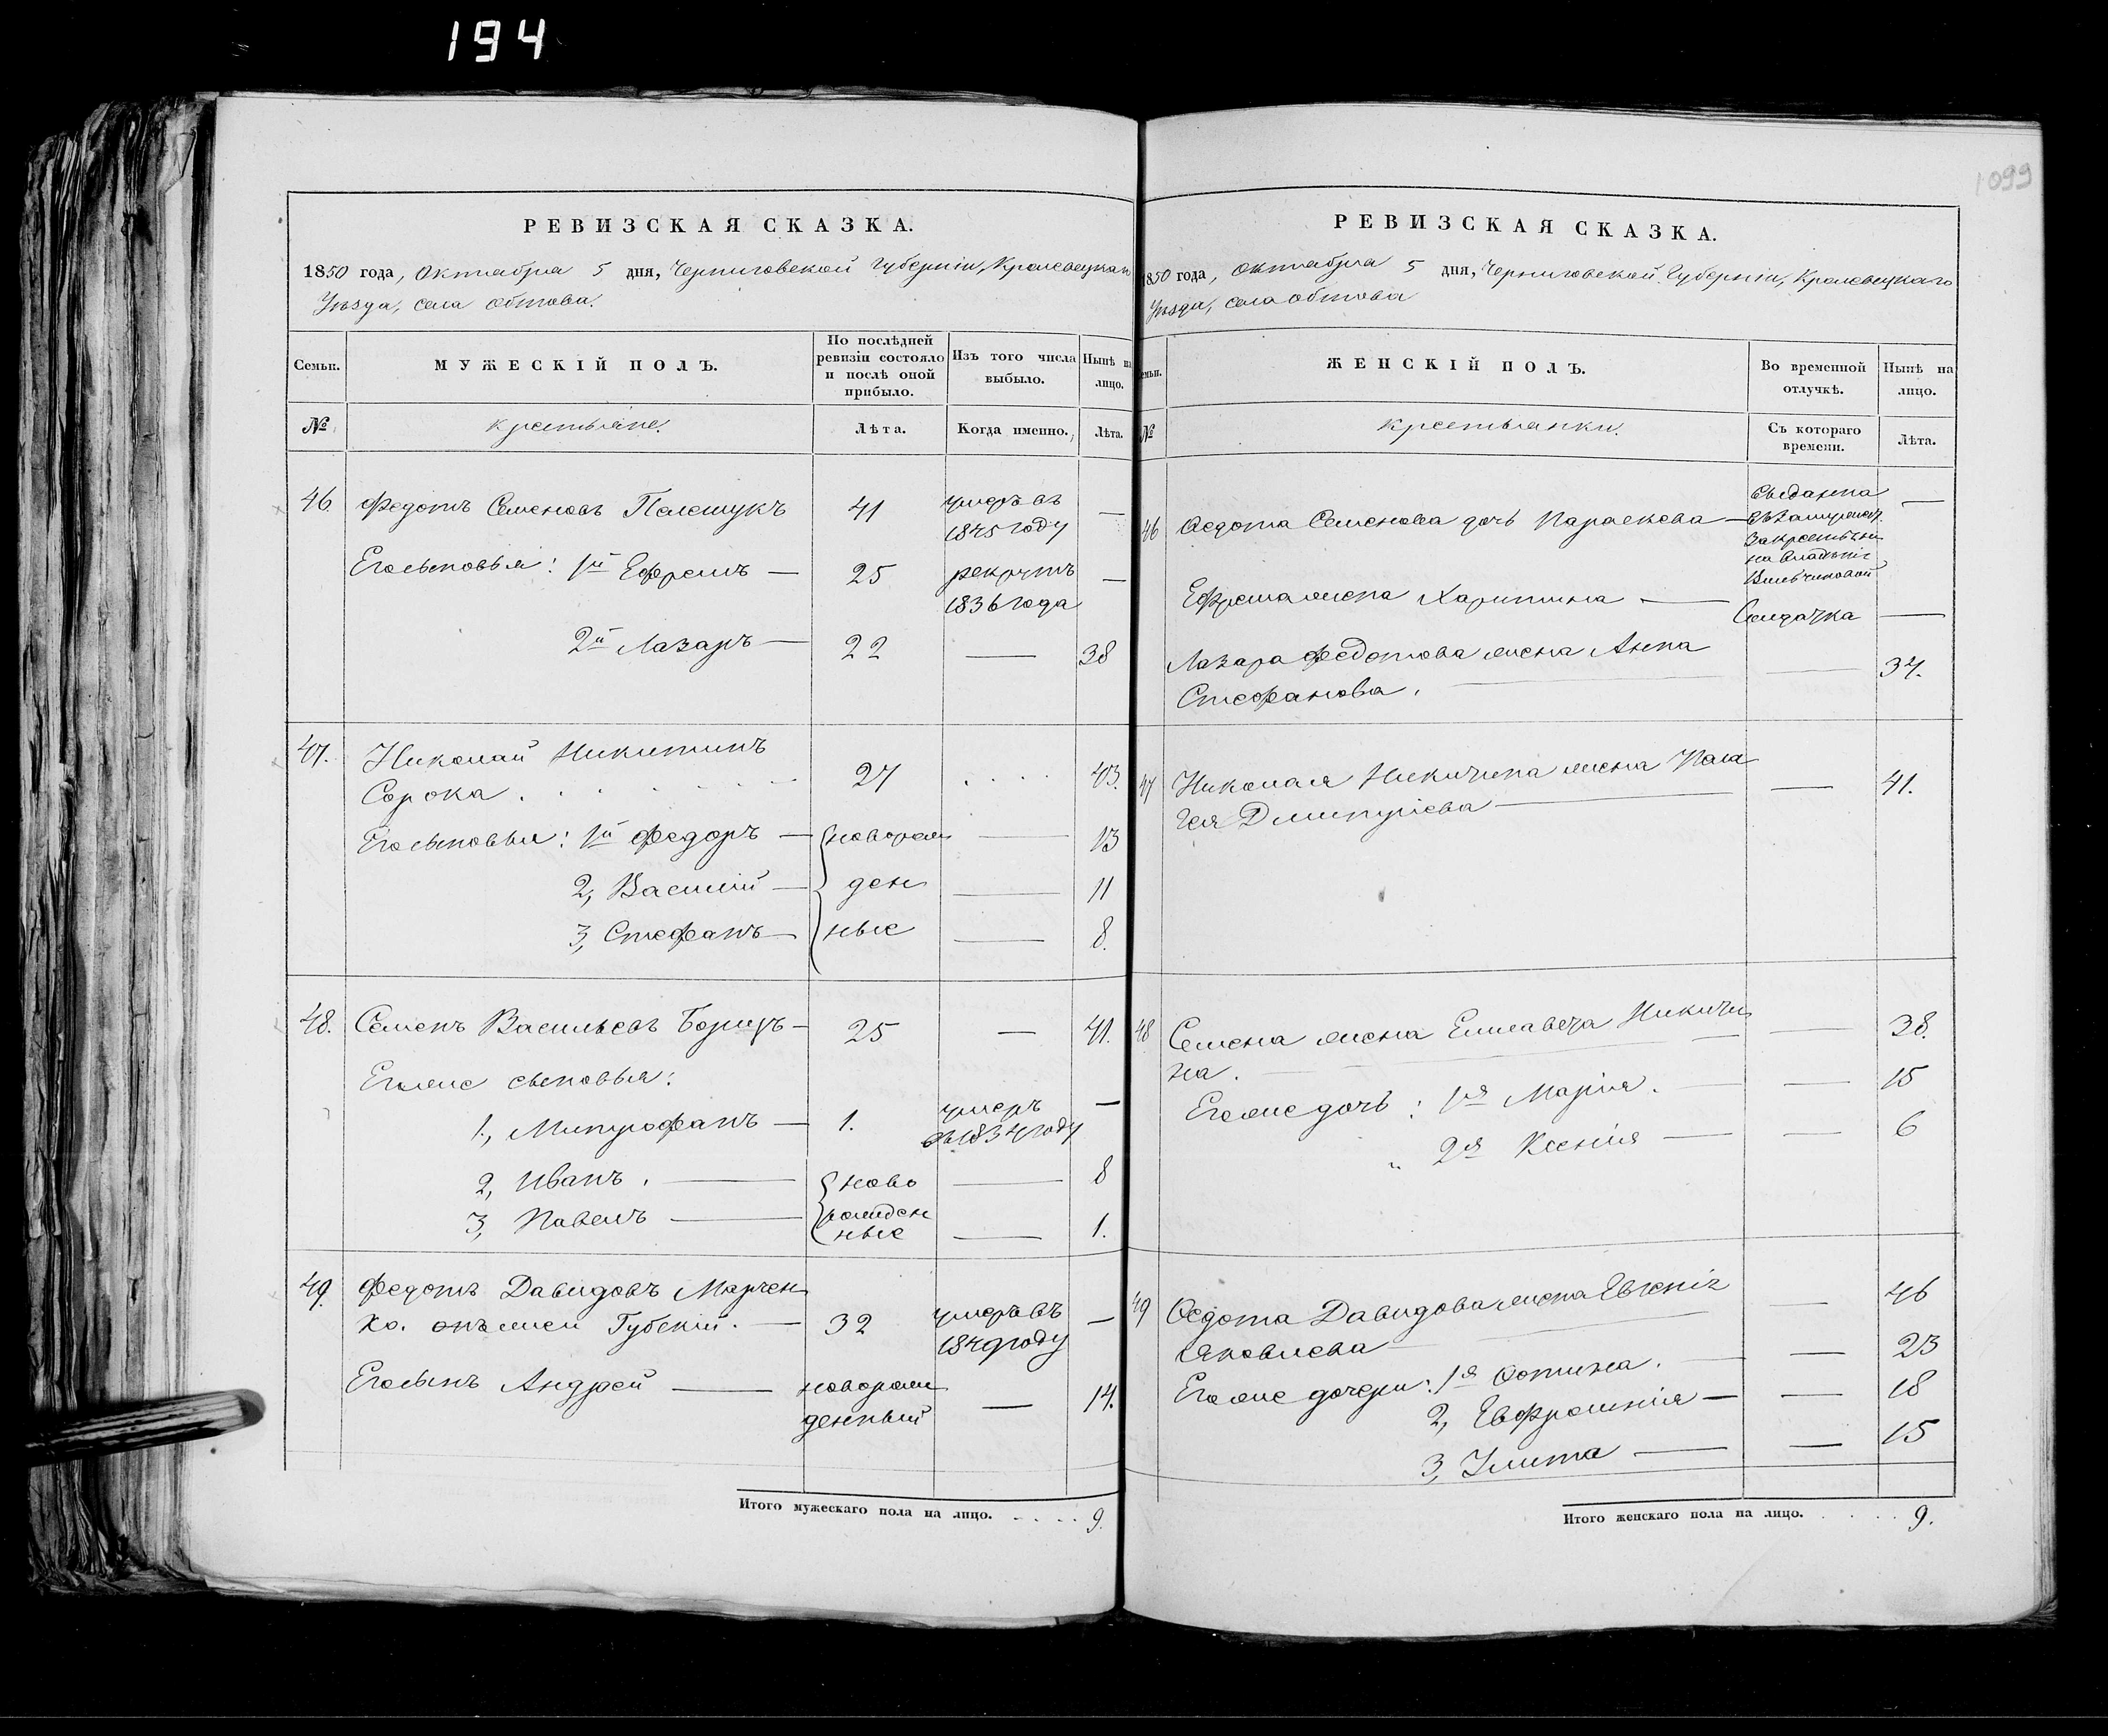 194
1099
РЕВИЗСКАЯ СКАЗКА.
1850 года, Октября 5 дня, Черниговской Губерніи, Кролевецкаго
Уѣзда, села Обтова.
Семьи.
МУЖЕСКІЙ ПОЛЪ.
По послѣдней ревизіи состояло и послѣ оной прибыло.
Изъ того числа выбыло.
Нынѣ на лицо.
№
Крестьяне.
Лѣта.
Когда именно.
Лѣта.
46. Федотъ Семеновъ Полещукъ 41 умеръ въ —
1845 году
Его сыновья: 1й Ефремъ — 25 рекрутъ —
1836 года
2й Лазарь — 22 — 38
47. Николай Никитинъ
Сорока . . . . . . 27 . . . . 43.
Его сыновья: 1й Федоръ — новорож — 13
2, Василій — ден — 11
3, Стефанъ — ные — 8.
48. Семенъ Васильевъ Борщъ — 25 — 41.
Его же сыновья:
1, Митрофанъ — 1. умеръ —
въ 1834 году
2, Иванъ . — ново — 8
3, Павелъ — рожден
ные — 1.
49. Федотъ Давидовъ Марчен
ко. онъ же и Губскій. — 32 умеръ въ —
1849 году
Его сынъ Андрей — новорож
денный — 14.
Итого мужескаго пола на лицо. . . . . 9.
РЕВИЗСКАЯ СКАЗКА.
1850 года, Октября 5 дня, Черниговской Губерніи, Кролевецкаго
Уѣзда, села Обтова
Семьи.
ЖЕНСКІЙ ПОЛЪ.
Во временной отлучкѣ.
Нынѣ на лицо.
№
Крестьянки.
Съ котораго времени.
Лѣта.
46 Ѳедота Семенова дочь Параскева — —
за крестьяни
на
Ефрема жена Харитина — Солдатка —
Лазара Федотова жена Анна
Стефанова. — 37.
47 Николая Никитина жена Пела
гея Дмитріева — — 41.
48 Семена жена Елисавета Никити
на. — — 38.
Его же дочь: 1я Марія. — — 15
" 2я Ксенія — — 6
49 Ѳедота Давидова жена Евгенія
Яковлева — — 46
Его же дочери: 1я Фотина. — — 23
2, Евфросинія — — 18
3, Улита — — 15
Итого женскаго пола на лицо. . . . . 9.